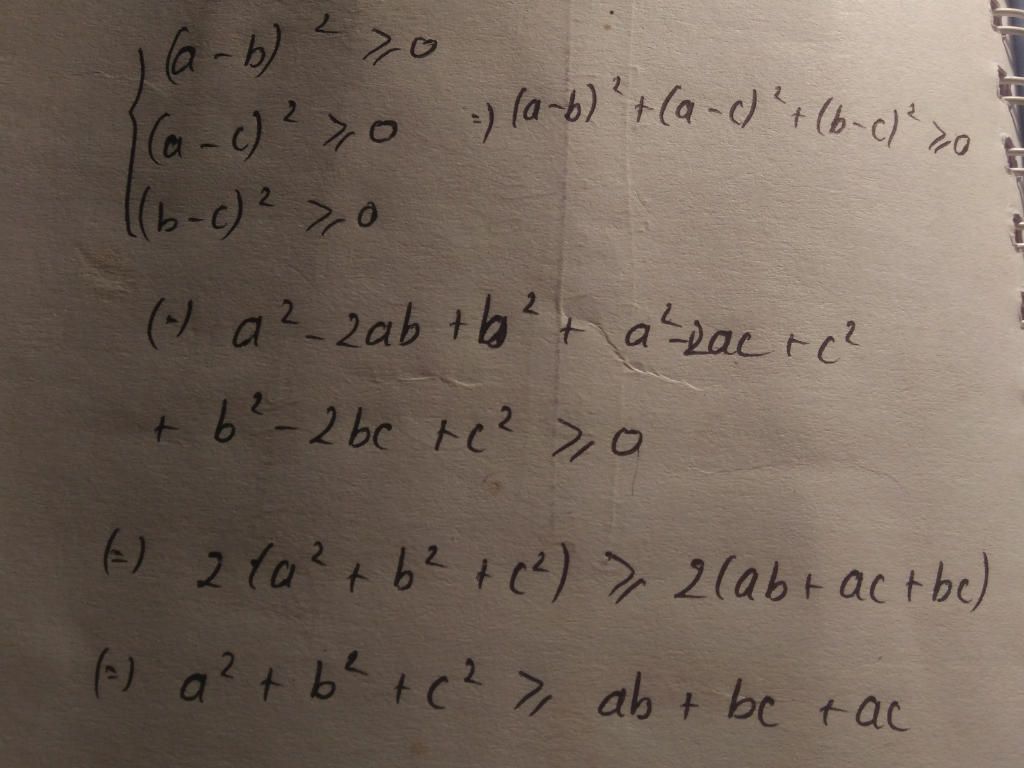 (a-b)² ⩾ 0
(a-c)² ⩾ 0 =) (a-b)² + (a-c)² + (b-c)² ⩾ 0
(b-c)² ⩾ 0
(=) a² - 2ab + b² + a² - 2ac + c²
+ b² - 2bc + c² ⩾ 0
(=) 2(a² + b² + c²) ⩾ 2(ab + ac + bc)
(=) a² + b² + c² ⩾ ab + bc + ac